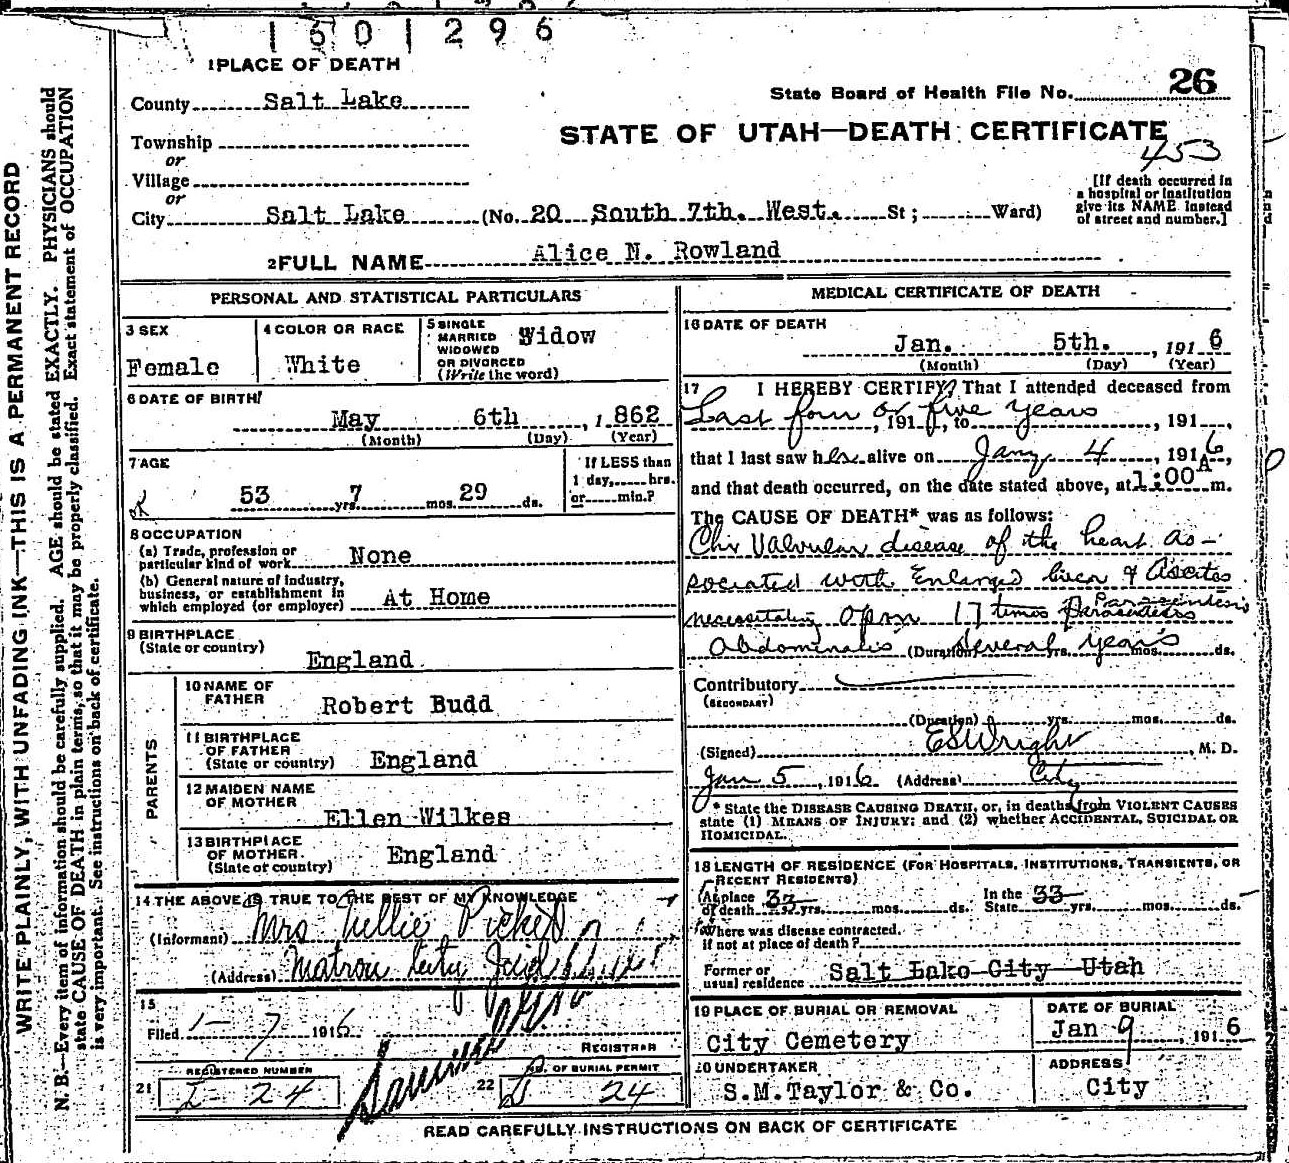 1601296
1 PLACE OF DEATH
County Salt Lake
State Board of Health File No. 26
Township
or
STATE OF UTAH—DEATH CERTIFICATE
453
Village
or
City Salt Lake (No. 20 South 7th. West. St; Ward)
[If death occurred in
a hospital or institution
give its NAME instead
of street and number.]
2 FULL NAME Alice N. Rowland
PERSONAL AND STATISTICAL PARTICULARS
3 SEX
Female
4 COLOR OR RACE
White
5 SINGLE
MARRIED
WIDOWED
OR DIVORCED
(Write the word)
Widow
6 DATE OF BIRTH
May 6th, 1862
(Month) (Day) (Year)
7 AGE
53 yrs. 7 mos. 29 ds.
If LESS than
1 day,......hrs.
or......min.?
8 OCCUPATION
(a) Trade, profession or
particular kind of work None
(b) General nature of industry,
business, or establishment in
which employed (or employer) At Home
9 BIRTHPLACE
(State or country)
England
PARENTS
10 NAME OF
FATHER
Robert Budd
11 BIRTHPLACE
OF FATHER
(State or country) England
12 MAIDEN NAME
OF MOTHER
Ellen Wilkes
13 BIRTHPLACE
OF MOTHER
(State or country) England
14 THE ABOVE IS TRUE TO THE BEST OF MY KNOWLEDGE
(Informant) Mrs Nellie Pickett
(Address) Matron City Jail
15
Filed 1-7 1916
REGISTRAR
REGISTERED NUMBER
21 I-24
NO. OF BURIAL PERMIT
22 24
MEDICAL CERTIFICATE OF DEATH
16 DATE OF DEATH
Jan. 5th. , 1916
(Month) (Day) (Year)
17 I HEREBY CERTIFY, That I attended deceased from
Last four or five years , 191 , to , 191 ,
that I last saw her alive on Jany 4 , 1916,
and that death occurred, on the date stated above, at 1:00 A m.
The CAUSE OF DEATH* was as follows:
Chr Valvular disease of the heart as-
sociated with Enlarged liver & Ascites
necessitating opern 17 times Paracentesis
Abdominalis (Duration) several yrs. years mos. ds.
Contributory
(SECONDARY)
(Duration) yrs. mos. ds.
(Signed) E S Wright, M. D.
Jan 5, 1916 (Address) City
* State the DISEASE CAUSING DEATH, or, in deaths from VIOLENT CAUSES
state (1) MEANS OF INJURY; and (2) whether ACCIDENTAL, SUICIDAL OR
HOMICIDAL.
18 LENGTH OF RESIDENCE (FOR HOSPITALS, INSTITUTIONS, TRANSIENTS, OR
RECENT RESIDENTS)
At place
of death 33 yrs. mos. ds. In the
State 33 yrs. mos. ds.
Where was disease contracted.
if not at place of death?
Former or
usual residence Salt Lake City Utah
19 PLACE OF BURIAL OR REMOVAL
City Cemetery
DATE OF BURIAL
Jan 9 , 1916
20 UNDERTAKER
S.M.Taylor & Co.
ADDRESS
City
READ CAREFULLY INSTRUCTIONS ON BACK OF CERTIFICATE
WRITE PLAINLY, WITH UNFADING INK—THIS IS A PERMANENT RECORD
N. B.—Every item of information should be carefully supplied. AGE should be stated EXACTLY. PHYSICIANS should
state CAUSE OF DEATH in plain terms, so that it may be properly classified. Exact statement of OCCUPATION
is very important. See instructions on back of certificate.